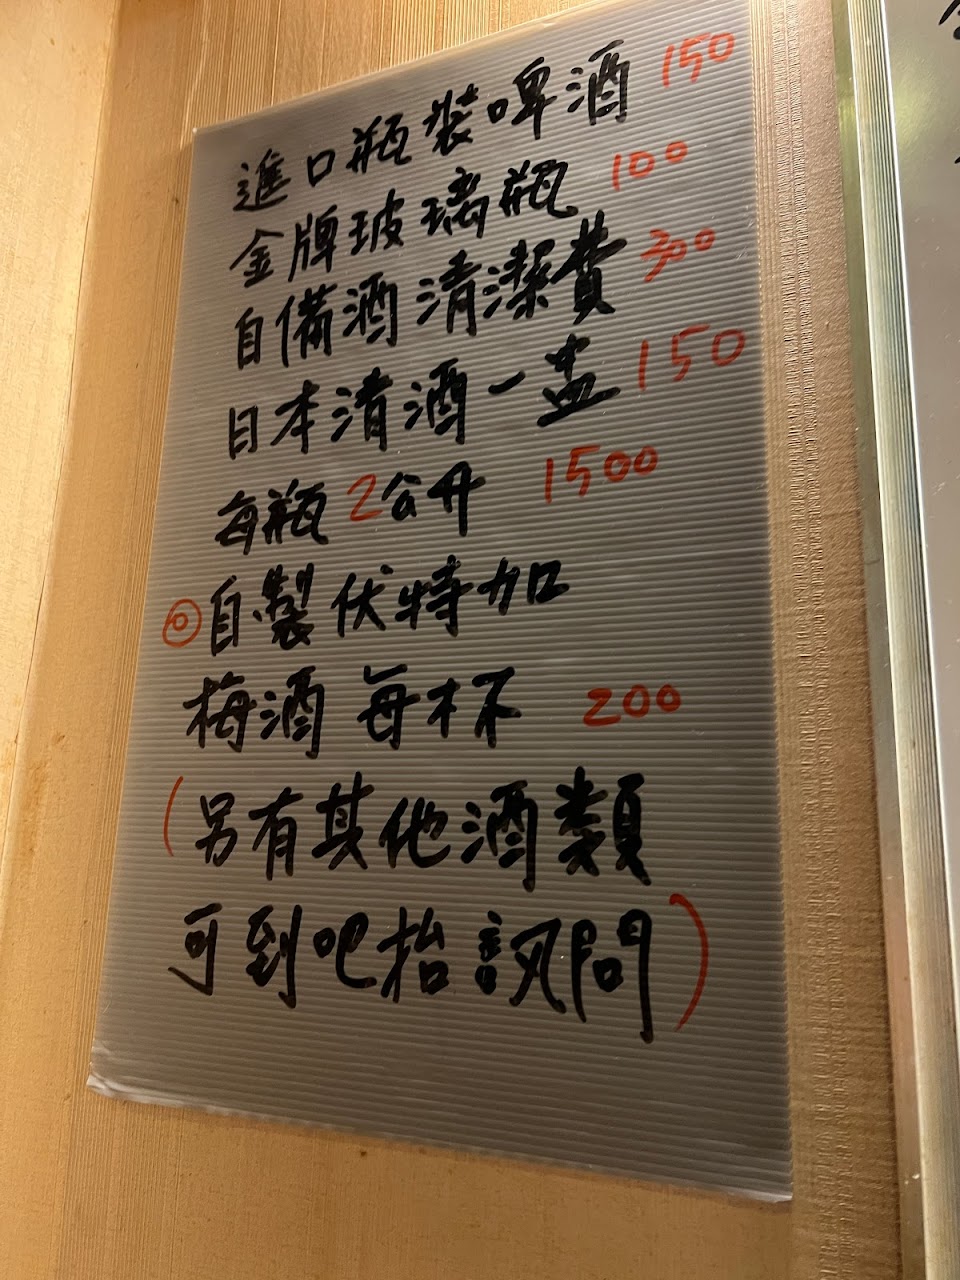 進口瓶裝啤酒 150
金牌玻璃瓶 100
自備酒清潔費 300
日本清酒一盅 150
每瓶2公升 1500
◎自製伏特加
梅酒 每杯 200
(另有其他酒類
可到吧抬訊問)